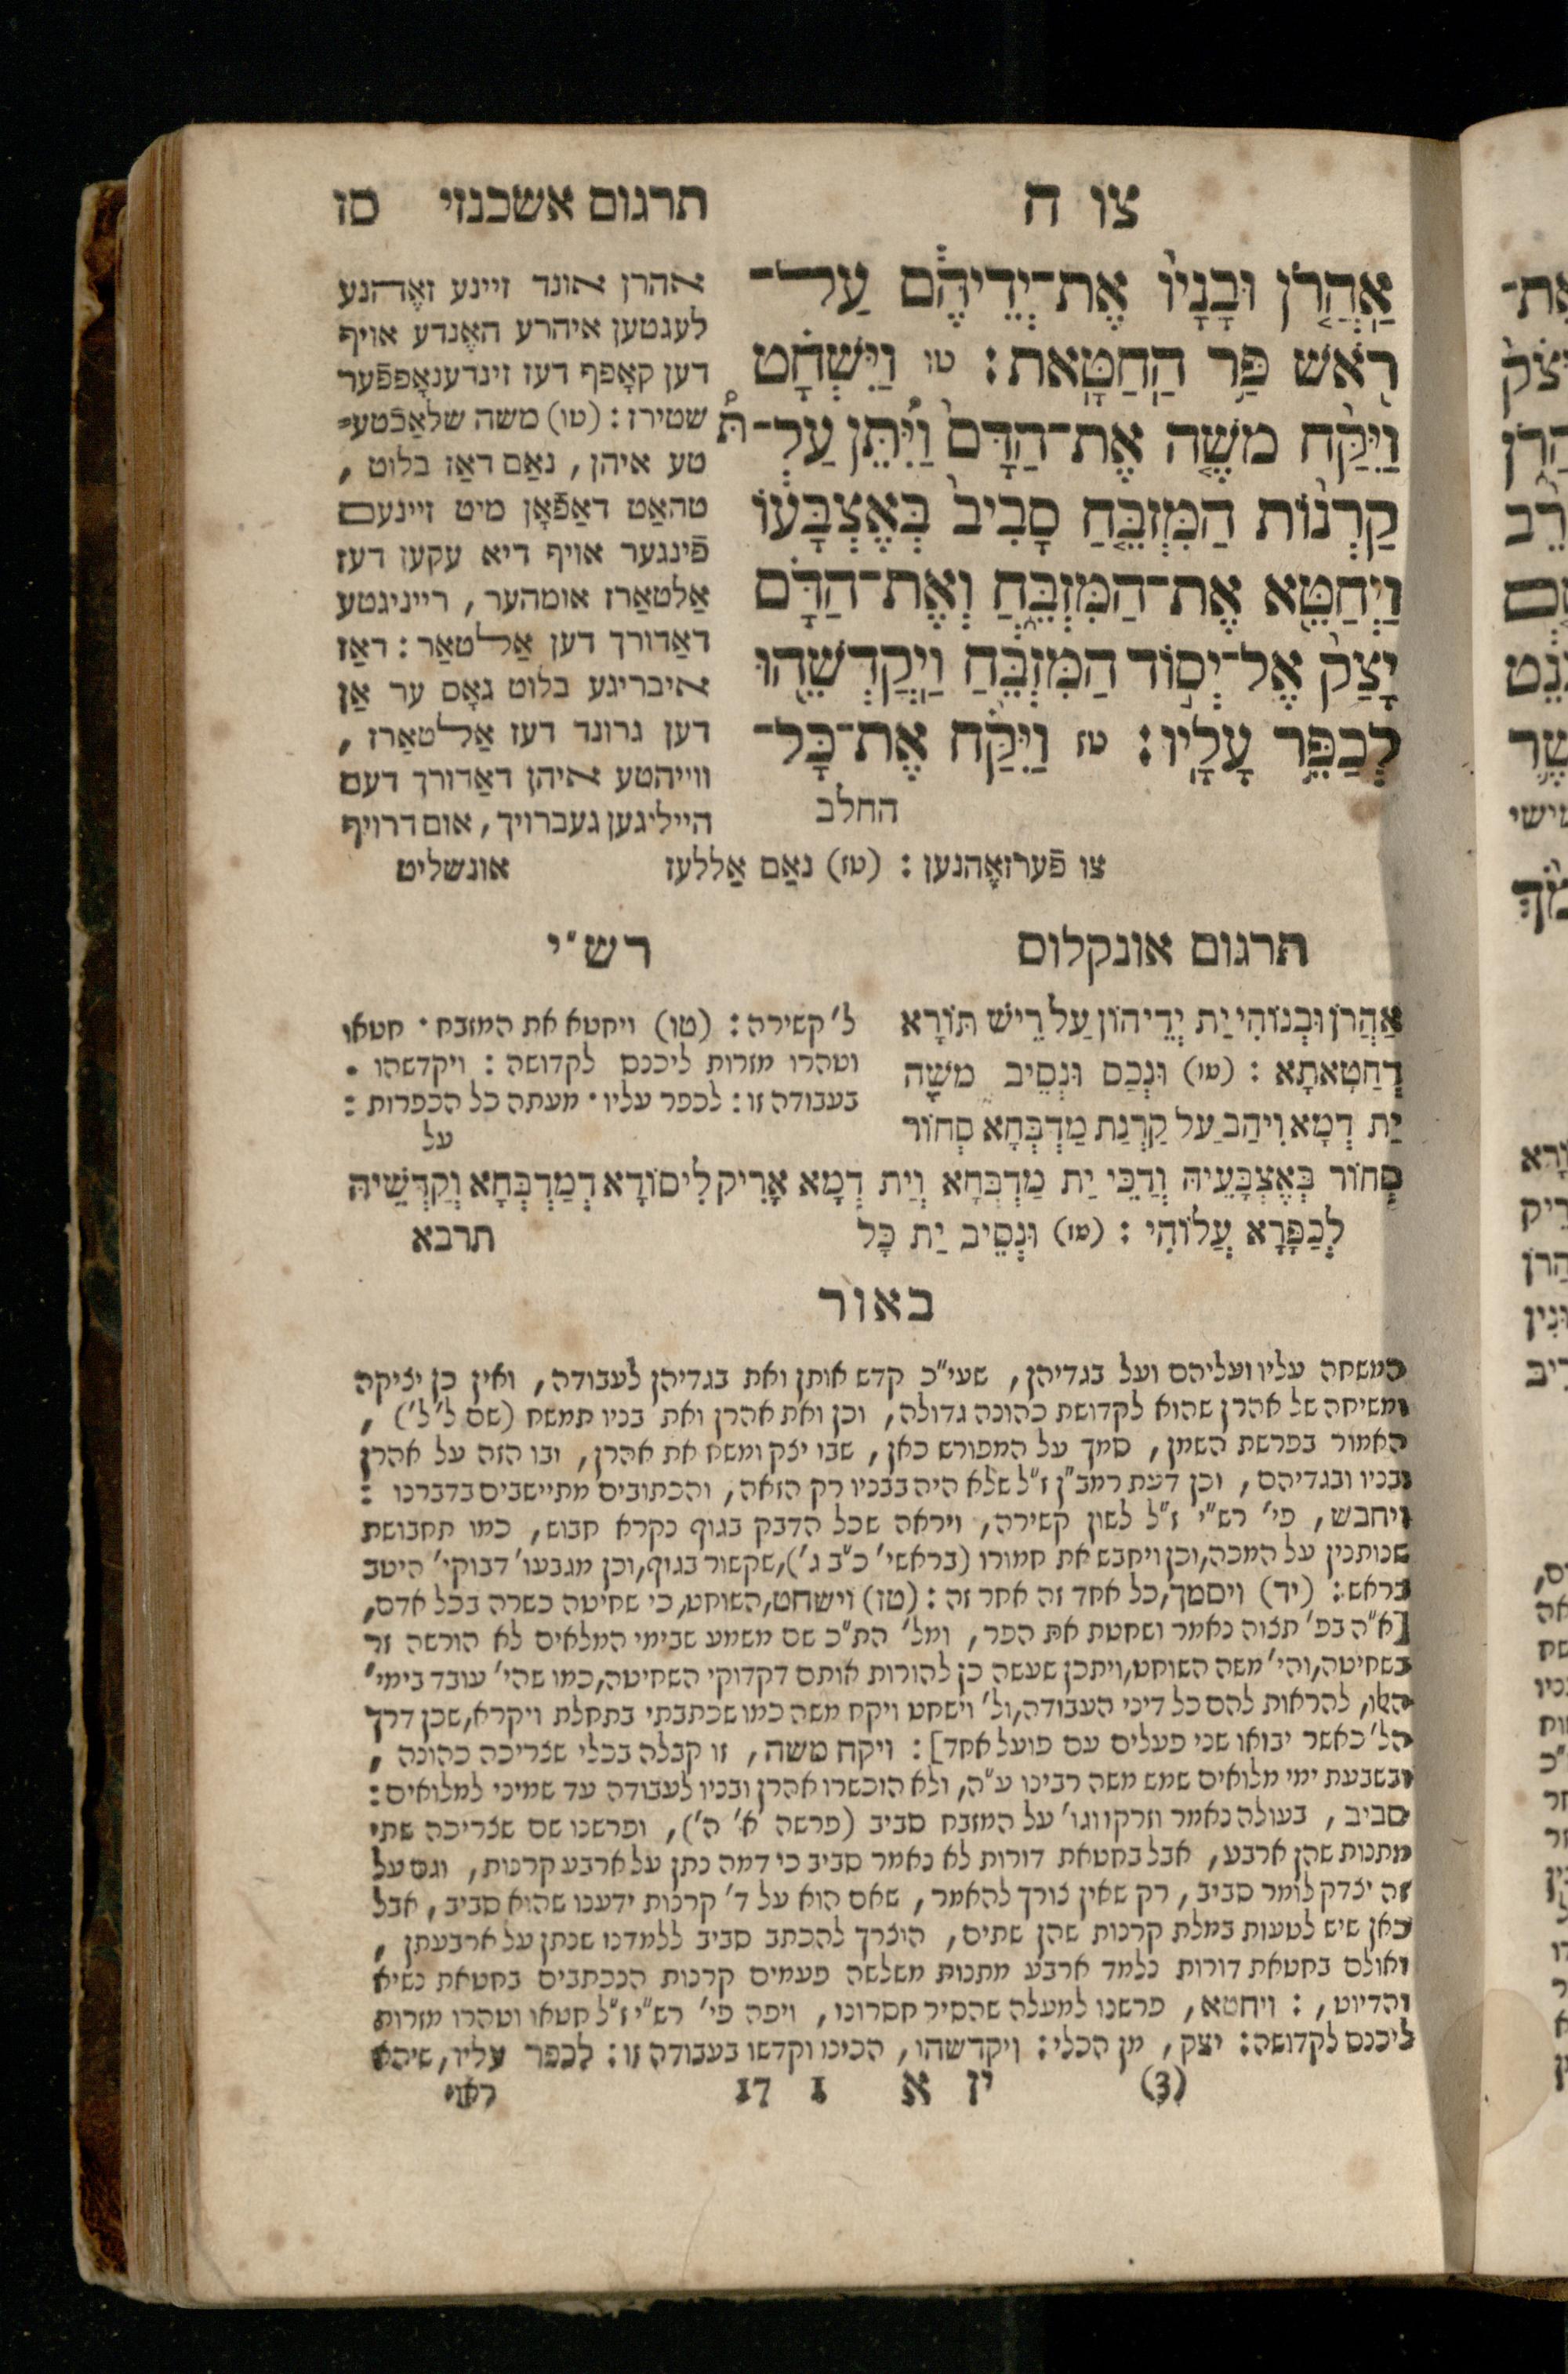 צו ה
תרגום אשכנזי סז
אַהֲרֹ֤ן וּבָנָיו֙ אֶת־יְדֵיהֶ֔ם עַל־
רֹ֖אשׁ פַּ֥ר הַֽחַטָּֽאת׃ טו וַיִּשְׁחָ֗ט
וַיִּקַּ֨ח מֹשֶׁ֤ה אֶת־הַדָּם֙ וַ֠יִּתֵּן עַל־
קַרְנ֨וֹת הַמִּזְבֵּ֤חַ סָבִיב֙ בְּאֶצְבָּע֔וֹ
וַיְחַטֵּ֖א אֶת־הַמִּזְבֵּ֑חַ וְאֶת־הַדָּ֗ם
יָצַק֙ אֶל־יְס֣וֹד הַמִּזְבֵּ֔חַ וַֽיְקַדְּשֵׁ֖הוּ
לְכַפֵּ֥ר עָלָֽיו׃ טז וַיִּקַּ֗ח אֶֽת־כָּל־
החלב
אהרן אונד זיינע זאֶהנע
לעגטען איהרע האֶנדע אויף
דען קאָפף דעז זינדענאָפפֿער
שטירז : (טו) משה שלאַכֿטע=
טע איהן , נאַם דאַז בלוט ,
טהאַט דאַפֿאָן מיט זיינעם
פֿינגער אויף דיא עקען דעז
אַלטאַרז אומהער , רייניגטע
דאַדורך דען אַלטאַר : דאַז
איבריגע בלוט גאָס ער אַן
דען גרונד דעז אַלטאַרז ,
ווייהטע איהן דאַדורך דעם
הייליגען געברויך , אום דרויף
צו פֿערזאֶהנען : (טז) נאַם אַללעז
אונשליט
תרגום אונקלוס
אַהֲרֹן וּבְנוֹהִי יַת יְדֵיהוֹן עַל רֵישׁ תּוֹרָא
דְחַטָּאתָא : (טו) וּנְכַס וּנְסֵיב משֶׁה
יַת דְּמָא וִיהַב עַל קַרְנַת מַדְבְּחָא סְחוֹר
סְחוֹר בְּאֶצְבָּעֵיהּ וְדַכֵּי יַת מַדְבְּחָא וְיַת דְּמָא אָרִיק לִיסוֹדָא דְמַדְבְּחָא וְקַדְּשֵׁיהּ
לְכַפָּרָא עֲלוֹהִי : (טז) וּנְסֵיב יַת כָּל
תרבא
רש״י
ל׳ קשירה : (טו) ויחטא את המזבח · חטאו
וטהרו מזרות ליכנס לקדושה : ויקדשהו ·
בעבודה זו : לכפר עליו · מעתה כל הכפרות :
על
באור
המשחה עליו ועליהם ועל בגדיהן , שעי״כ קדש אותן ואת בגדיהן לעבודה , ואין כן יציקה
ומשיחה של אהרן שהוא לקדושת כהונה גדולה , וכן ואת אהרן ואת בניו תמשח (שם ל׳ ל׳) ,
האמור בפרשת השמן , סמך על המפורש כאן , שבו יצק ומשח את אהרן , ובו הזה על אהרן
ובניו ובגדיהם , וכן דעת רמב״ן ז״ל שלא היה בבניו רק הזאה , והכתובים מתיישבים בדברנו :
ויחבש , פי׳ רש״י ז״ל לשון קשירה , ויראה שכל הדבק בגוף נקרא חבוש , כמו תחבושת
שנותנין על המכה , וכן ויחבש את חמורו (בראשי׳ כ״ב ג׳) , שקשור בגוף , וכן מגבעו׳ דבוקי׳ היטב
בראש : (יד) ויסמך , כל אחד זה אחר זה : (טו) וישחט , השוחט , כי שחיטה כשרה בכל אדם ,
[א״ה בפ׳ תצוה נאמר ושחטת את הפר , ומל׳ הת״כ שם משמע שבימי המלאים לא הורשה זר
בשחיטה , והי׳ משה השוחט , ויתכן שעשה כן להורות אותם דקדוקי השחיטה , כמו שהי׳ עובד בימי׳
האלו , להראות להם כל דיני העבודה , ול׳ וישחט ויקח משה כמו שכתבתי בתחלת ויקרא , שכן דרך
הל׳ כאשר יבואו שני פעלים עם פועל אחד] : ויקח משה , זו קבלה בכלי שצריכה כהונה ,
ובשבעת ימי מלואים שמש משה רבינו ע״ה , ולא הוכשרו אהרן ובניו לעבודה עד שמיני למלואים :
סביב , בעולה נאמר וזרקו וגו׳ על המזבח סביב (פרשה א׳ ה׳) , ופרשנו שם שצריכה שתי
מתנות שהן ארבע , אבל בחטאת דורות לא נאמר סביב כי דמה נתן על ארבע קרנות , וגם על
זה יצדק לומר סביב , רק שאין צורך להאמר , שאם הוא על ד׳ קרנות ידענו שהוא סביב , אבל
כאן שיש לטעות במלת קרנות שהן שתים , הוצרך להכתב סביב ללמדנו שנתן על ארבעתן ,
ואולם בחטאת דורות נלמד ארבע מתנות משלשה פעמים קרנות הנכתבים בחטאת נשיא
והדיוט , : ויחטא , פרשנו למעלה שהסיר חסרונו , ויפה פי׳ רש״י ז״ל חטאו וטהרו מזרות
ליכנס לקדושה : יצק , מן הכלי : ויקדשהו , הכינו וקדשו בעבודה זו : לכפר עליו , שיהא
(3) יז א 1 17
ראוי